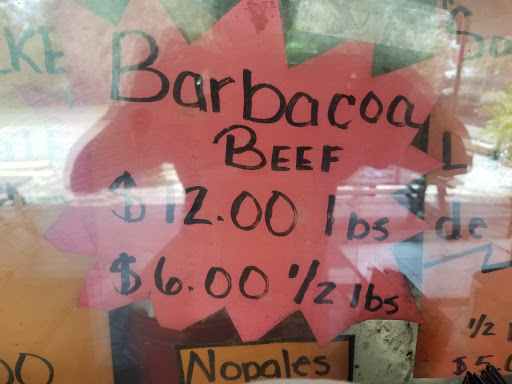 Barbacoa
BEEF
$12.00 lbs
$6.00 1/2 lbs
Nopales
de
1/2